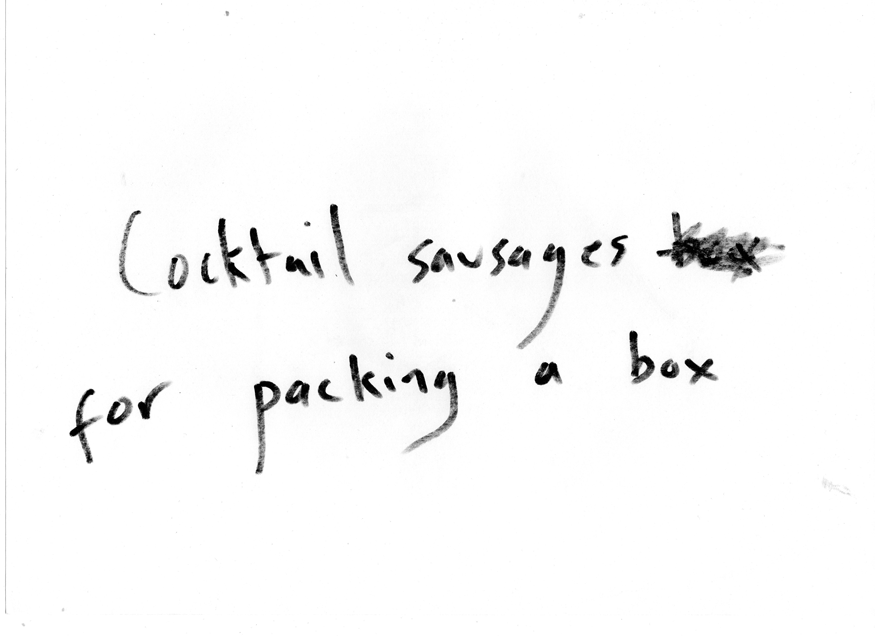 Cocktail sausages
for packing a box